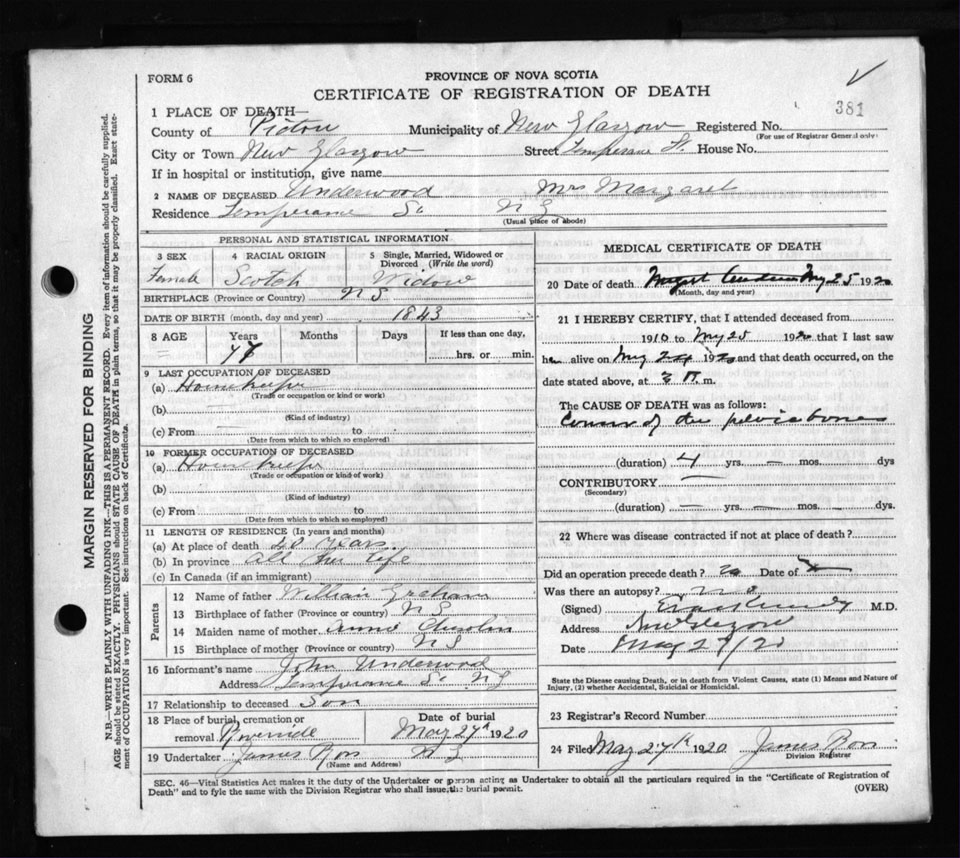 FORM 6
PROVINCE OF NOVA SCOTIA
CERTIFICATE OF REGISTRATION OF DEATH
381
1 PLACE OF DEATH—
County of Pictou Municipality of New Glasgow Registered No.
(For use of Registrar General only)
City or Town New Glasgow Street Temperance St. House No.
If in hospital or institution, give name
2 NAME OF DECEASED Underwood Mrs Margaret
Residence Temperance St N G
(Usual place of abode)
PERSONAL AND STATISTICAL INFORMATION
3 SEX
Female
4 RACIAL ORIGIN
Scotch
5 Single, Married, Widowed or Divorced (Write the word)
Widow
BIRTHPLACE (Province or Country) N S
DATE OF BIRTH (month, day and year) 1843
8 AGE Years Months Days If less than one day,
hrs. or min.
9 LAST OCCUPATION OF DECEASED
(a) Housekeeper
(Trade or occupation or kind or work)
(b)
(Kind of industry)
(c) From — to
(Date from which to which so employed)
10 FORMER OCCUPATION OF DECEASED
(a) Housekeeper
(Trade or occupation or kind of work)
(b)
(Kind of industry)
(c) From to
(Date from which to which so employed)
11 LENGTH OF RESIDENCE (In years and months)
(a) At place of death 20 years
(b) In province all her life
(c) In Canada (if an immigrant)
Parents
12 Name of father William Graham
13 Birthplace of father (Province or country) N S
14 Maiden name of mother Annie Chisholm
15 Birthplace of mother (Province or country) N S
16 Informant's name John Underwood
Address Temperance St N G
17 Relationship to deceased Son
18 Place of burial, cremation or removal Riverside
Date of burial
May 27th 1920
19 Undertaker James Ross N G
(Name and Address)
MEDICAL CERTIFICATE OF DEATH
20 Date of death May 25 1920
(Month, day and year)
21 I HEREBY CERTIFY, that I attended deceased from
1910 to May 25 1920 that I last saw
her alive on May 24 1920 and that death occurred, on the
date stated above, at m.
The CAUSE OF DEATH was as follows:
Cancer of the pelvic bone
(duration) 4 yrs. — mos. dys
CONTRIBUTORY —
(Secondary)
(duration) — yrs. — mos. — dys.
22 Where was disease contracted if not at place of death?
Did an operation precede death? no Date of
Was there an autopsy? no
(Signed) M.D.
Address New Glasgow
Date May 27/20
State the Disease causing Death, or in death from Violent Causes, state (1) Means and Nature of
Injury, (2) whether Accidental, Suicidal or Homicidal.
23 Registrar's Record Number
24 Filed May 27th 1920 James Ross
Division Registrar
SEC. 46—Vital Statistics Act makes it the duty of the Undertaker or person acting as Undertaker to obtain all the particulars required in the "Certificate of Registration of
Death" and to fyle the same with the Division Registrar who shall issue the burial permit. (OVER)
MARGIN RESERVED FOR BINDING
N.B.—WRITE PLAINLY WITH UNFADING INK—THIS IS A PERMANENT RECORD. Every item of information should be carefully supplied.
AGE should be stated EXACTLY. PHYSICIANS should STATE CAUSE OF DEATH in plain terms, so that it may be properly classified. Exact statement
of OCCUPATION is very important. See instructions on back of Certificate.